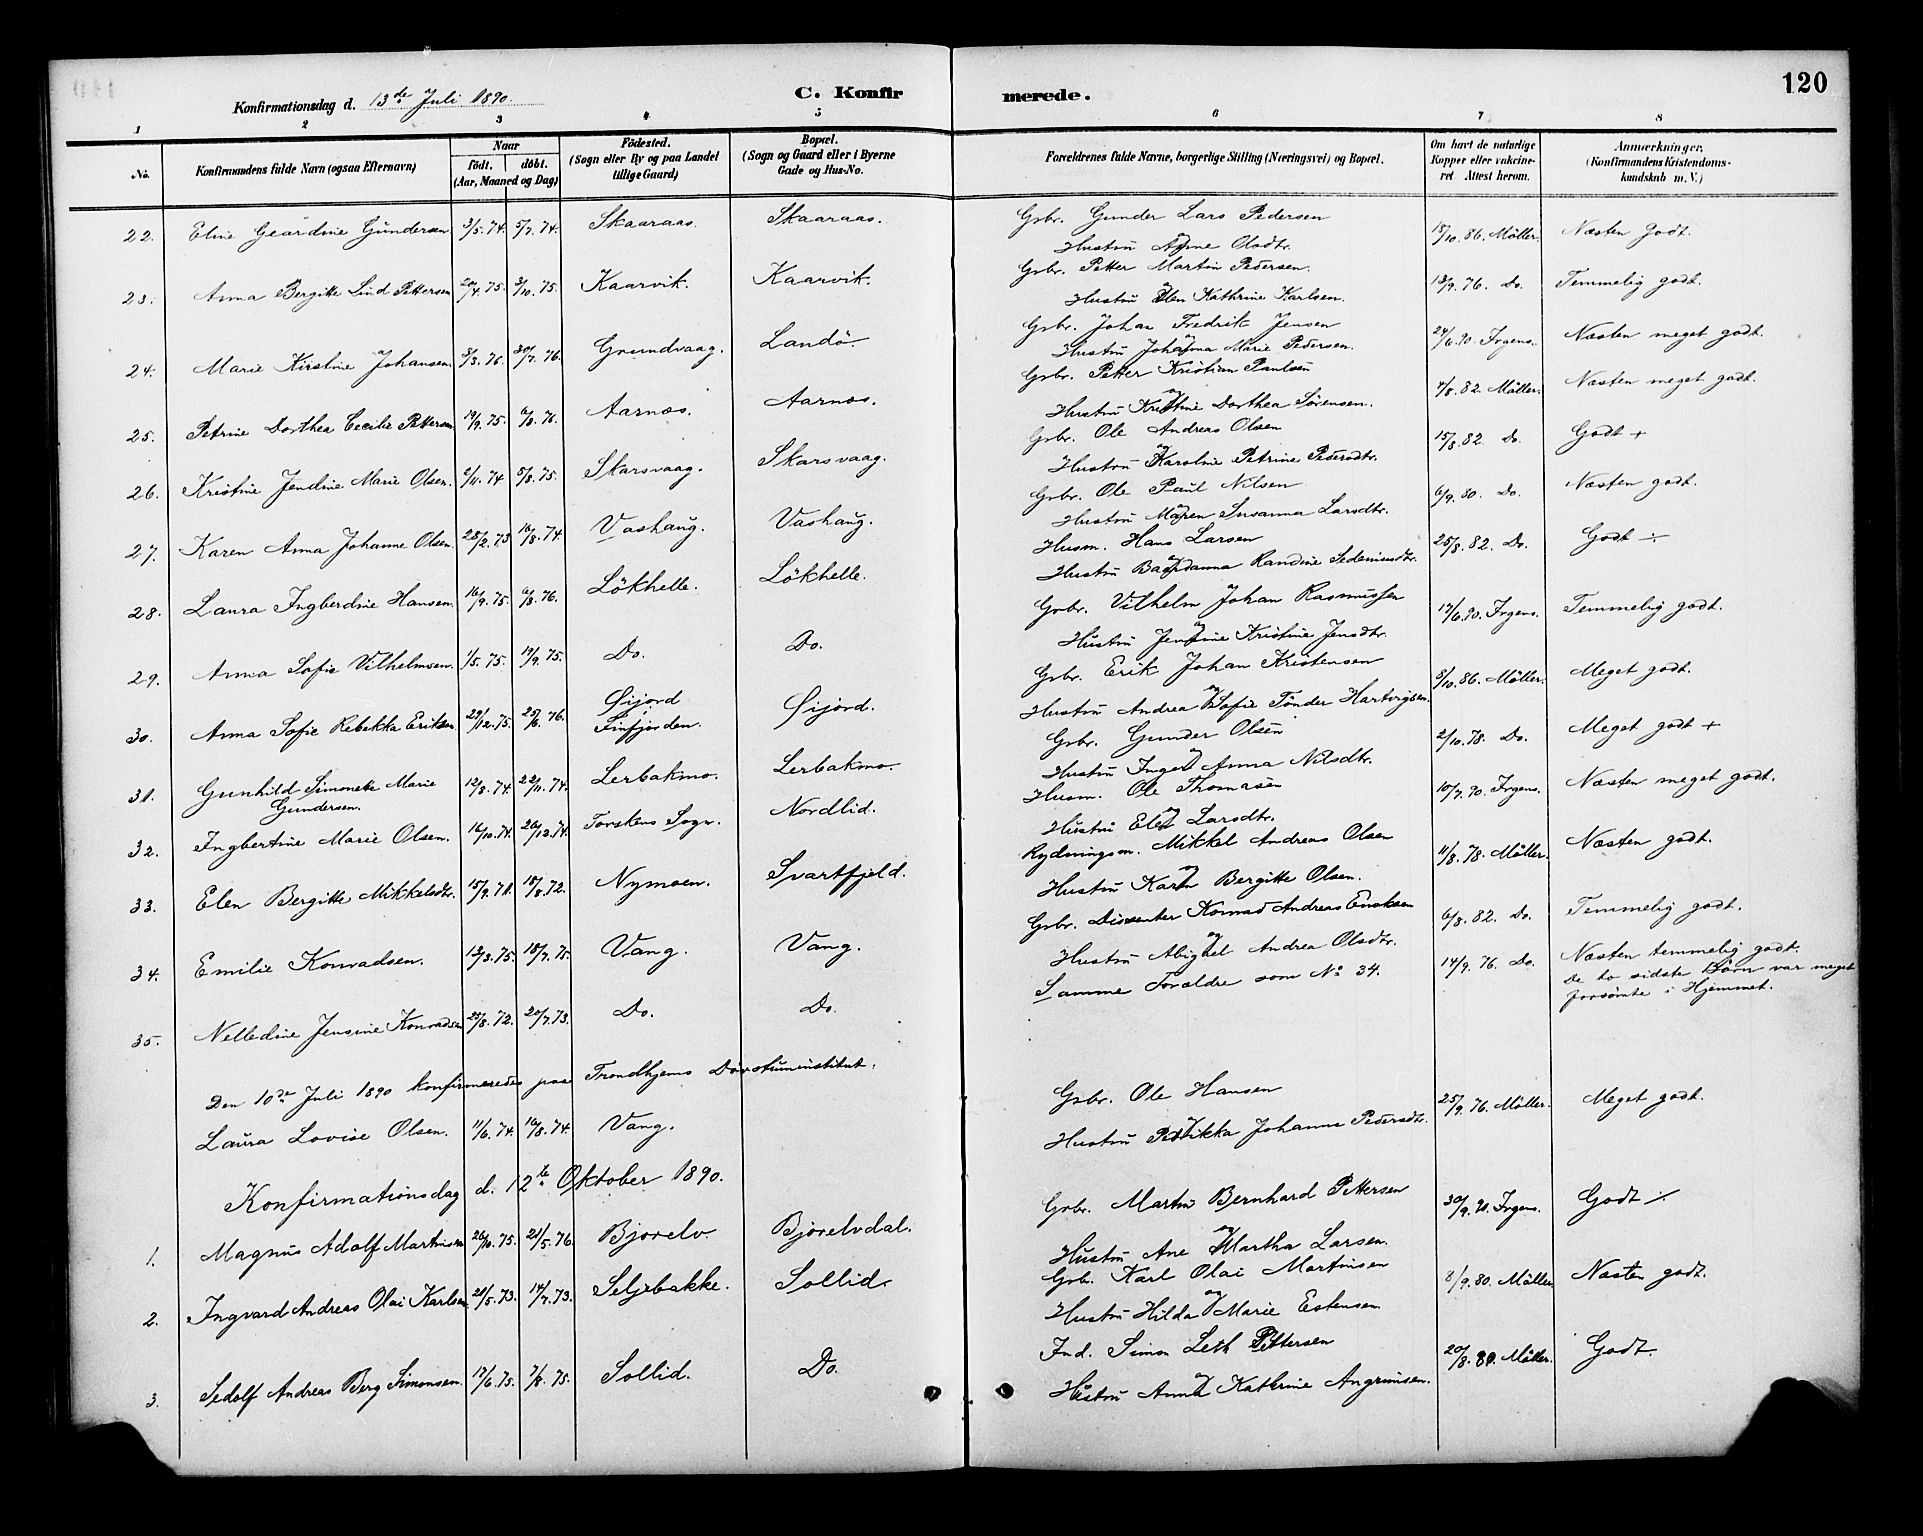 120
Konfirmationsdag d. 13de Juli 1890.
C. Konfirmerede.
1 2 3 4 5 6 7 8
No. Konfirmandens fulde Navn (ogsaa Efternavn) Naar födt. döbt. (Aar, Maaned og Dag) Födested. (Sogn eller By og paa Landet tillige Gaard) Bopæl. (Sogn og Gaard eller i Byerne Gade og Hus-No. Forældrenes fulde Navne, borgerlige Stilling (Næringsvei) og Bopæl. Om havt de naturlige Kopper eller vakcineret Attest herom. Anmærkninger. (Konfirmandens Kristendomskundskab m. V.)
22. Eline Geardine Gundersen 3/5.74. 5/7.74. Skaaraas. Skaaraas. Gbr. Gunder Lars Pedersen 18/10.86. Möller. Næsten Godt.
og Hustru Anne Olsdtr.
23. Anna Bergitte Lind Pettersen 20/4.75. 3/10.75. Kaarvik. Kaarvik. Gbr. Petter Martin Pedersen. 13/9.76. Do. Temmelig godt.
og Hustru Elen Kathrine Karlsen.
24. Marie Kirstine Johansen 3/3.76. 30/7.76. Grundvaag. Landö Gbr. Johan Fredrik Jensen 24/6.90. Irgens. Næsten meget godt.
og Hustru Johanna Marie Pedersen.
25. Petrine Dorthea Cecilie Pettersen 19/9.75. 6/8.76. Aarnes. Aarnes. Gbr. Petter Kristian Paulsen 7/8.82. Möller. Næsten meget godt.
og Hustru Kristine Dorthea Sörensen.
26. Kristine Jendine Marie Olsen. 2/11.74 5/8.75. Skarsvaag. Skarsvaag. Gbr. Ole Andreas Olsen 15/8.82. Do. Godt +
og Hustru Karoline Petrine Pedersdtr.
27. Karen Anna Johanne Olsen. 28/12.73 16/8.74. Vashaug. Vashaug. Gbr. Ole Paul Nilsen 6/9.80. Do. Næsten godt.
og Hustru Maren Susanna Larsdtr.
28. Laura Ingberdine Hansen. 16/9.75. 6/8.76. Lökhelle. Lökhelle. Husm. Hans Larsen 25/8.82. Do. Godt ÷
og Hustru Randine
29. Anna Sofie Vilhelmsen. 1/5.75. 19/9.75. Do. Do. Gbr. Vilhelm Johan Rasmussen 17/6.90. Irgens. Temmelig godt.
og Hustru Jensine Kristine Jensdtr.
30. Anna Sofie Rebekka Eriksen 29/12.75. 25/6.76. Öijord Finfjorden. Öijord. Gbr. Erik Johan Kristensen 8/10.86. Möller. Meget godt.
og Hustru Andrea Sofie Tönder Hartvigsen.
31. Gunhild Simonete Marie Gundersen. 12/8.74. 22/11.74. Lerbakmo. Lerbakmo. Gbr. Gunder Olsen 2/10.78. Do. Meget godt +
og Hustru Inger Anna Nilsdtr.
32. Ingbertine Marie Olsen. 16/10.74. 26/12.74. Torskens Sogn. Nordlid. Husm. Ole Thomasen 10/7.90. Irgens. Næsten meget godt.
og Hustru Elen Larsdtr.
33. Elen Bergitte Mikkelsdtr. 15/9.71. 18/8.72. Nymoen. Svartfjeld. Rydningsm. Mikkel Andreas Olsen 11/8.78. Möller. Næsten godt.
og Hustru Karen Bergitte Olsen.
34. Emilie Konradsen. 12/3.75. 18/7.75. Vang. Vang. Gbr. Dissenter Konrad Andreas Enoksen 6/8.82. Do. Temmelig godt.
og Hustru Abighel Andrea Olsdtr.
35. Nelledine Jensine Konradsen 25/8.72. 20/7.73. Do. Do. Samme Forældre som No 34. 14/9.76. Do. Næsten temmelig godt.
De to sidste Börn var meget
forsömte i Hjemmet.
Den 10de Juli 1890 konfirmeredes paa Trondhjems Dövstuminstitut.
Laura Lovise Olsen. 11/6.74. 16/8.74. Vang. Gbr. Ole Hansen 25/9.76. Möller. Meget godt.
og Hustru Petrikka Johanna Pedersdtr.
Konfirmationsdag d. 12te Oktober 1890.
1. Magnus Adolf Martinsen 26/10.75. 21/5.76. Bjorelv. Bjorelvdal. Gbr. Martin Bernhard Pettersen 30/9.90. Irgens. Godt ÷
og Hustru Ane Martha Larsen.
2. Ingvard Andreas Olai Karlsen 21/5.73. 14/7.73. Seljebakke. Sollid. Gbr. Karl Olai Martinsen 8/9.80. Möller Næsten godt.
og Hustru Hilda Marie Estensen.
3. Sedolf Andreas Berg Simonsen. 17/6.75. 7/8.75. Sollid. Do. Ind. Simon Leth Pettersen 20/8.80. Möller. Godt.
og Hustru Anna Kathrine Angrimsen.